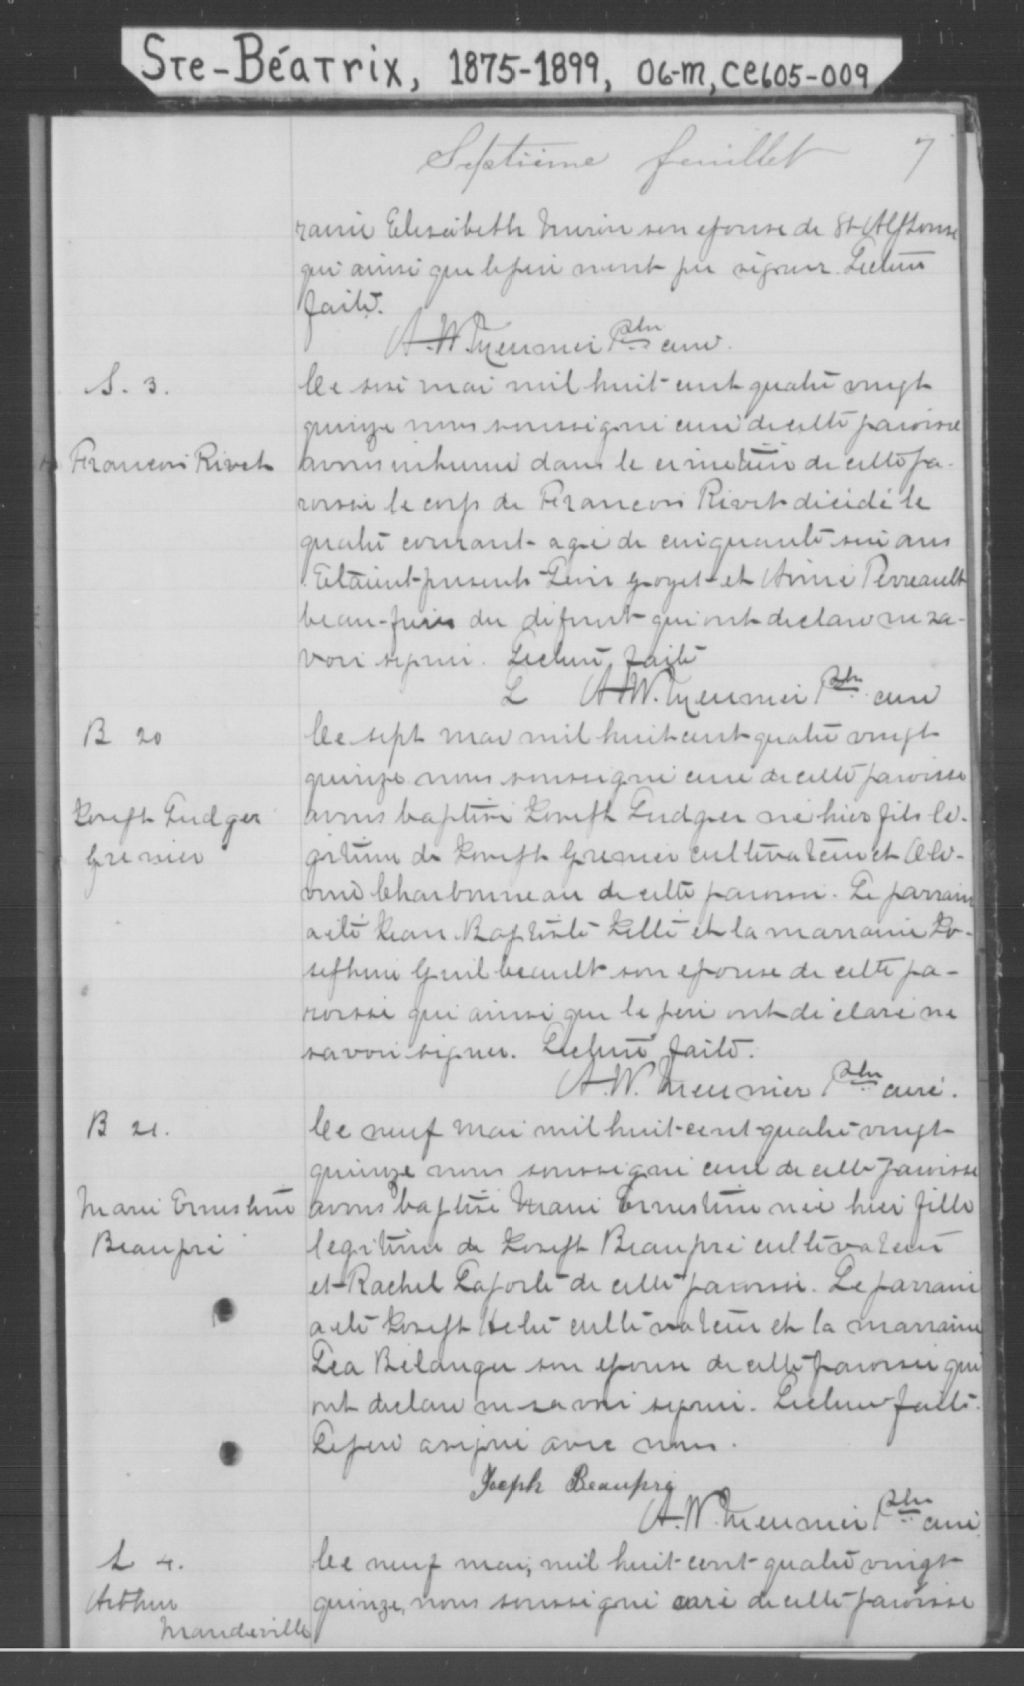 Ste-Béatrix, 1875-1899, 06-M, CE605-009
Septième feuillet 7
raine Elisabeth son epouse de St Alphonse
qui ainsi que le père n'ont pu signer. Lecture
faite.
A. W. Meunier Ptre curé.
S. 3.
Francois Rivet
Ce six mai mil huit cent quatre vingt
quinze nous soussigné curé de cette paroisse
avons inhumé dans le cimetière de cette pa-
roisse le corps de Francois Rivet décédé le
quatre courant agé de cinquante six ans
Etaient présents Goyet et Aimé Perreault
beau-frères du défunt qui ont declaré ne sa-
voir signer. Lecture faite
L A. W. Meunier Ptre curé
B 20
Joseph Ludger
Grenier
Ce sept mai mil huit cent quatre vingt
quinze nous soussigné curé de cette paroisse
avons baptisé Joseph Ludger né hier fils lé-
gitime de Joseph Grenier cultivateur et Olé-
vine Charbonneau de cette paroisse. Le parrain
a été Jean-Baptiste et la marraine Jo-
sephine Guilbeault son epouse de cette pa-
roisse qui ainsi que le père ont déclaré ne
savoir signer. Lecture faite.
A. W. Meunier Ptre curé.
B 21.
Marie Ernestine
Beaupré
Ce neuf mai mil huit-cent-quatre vingt
quinze nous soussigné curé de cette paroisse
avons baptisé Marie Ernestine née hier fille
legitime de Joseph Beaupré cultivateur
et Rachel Laporte de cette paroisse. Le parrain
a été Joseph cultivateur et la marraine
Léa Bélanger son epouse de cette paroisse qui
ont declaré ne savoir signer. Lecture faite.
Le père a signé avec nous.
Joseph Beaupré
A. W. Meunier Ptre curé
S 4.
Arthur
Mandeville
Ce neuf mai, mil huit-cent-quatre vingt
quinze, nous soussigné curé de cette paroisse